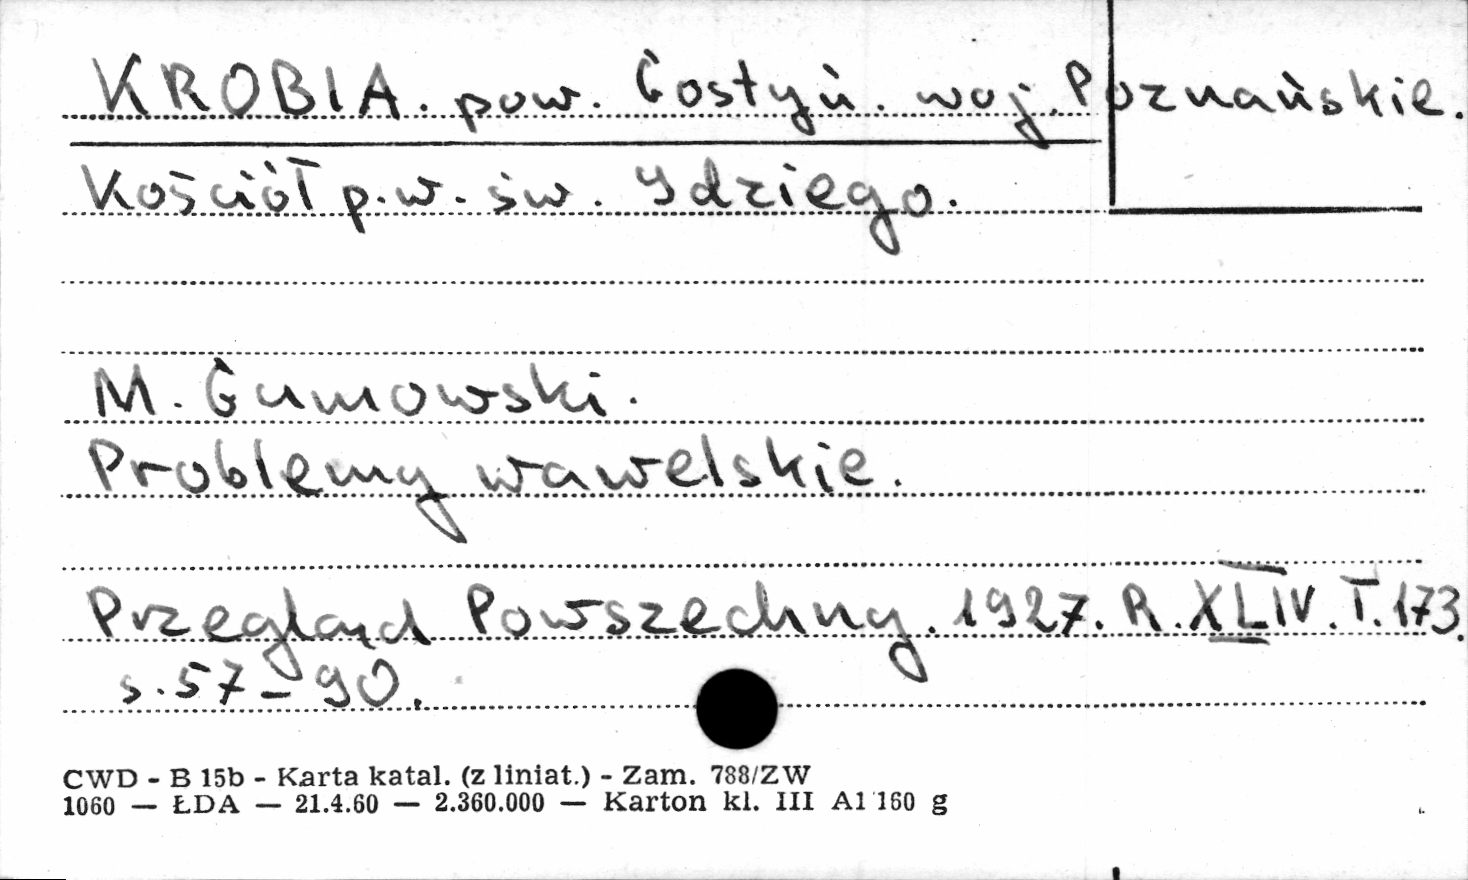 KROBIA. pow. Gostyń. woj. Poznańskie.
Kościół p.w. św. Idziego.
M. Gumowski.
Problemy wawelskie.
Przegląd Powszechny. 1927. R. XLIV. T. 173.
s. 57-90.
CWD - B 15b - Karta katal. (z liniat.) - Zam. 788/ZW
1060 — ŁDA — 21.4.60 — 2.360.000 — Karton kl. III A1 160 g